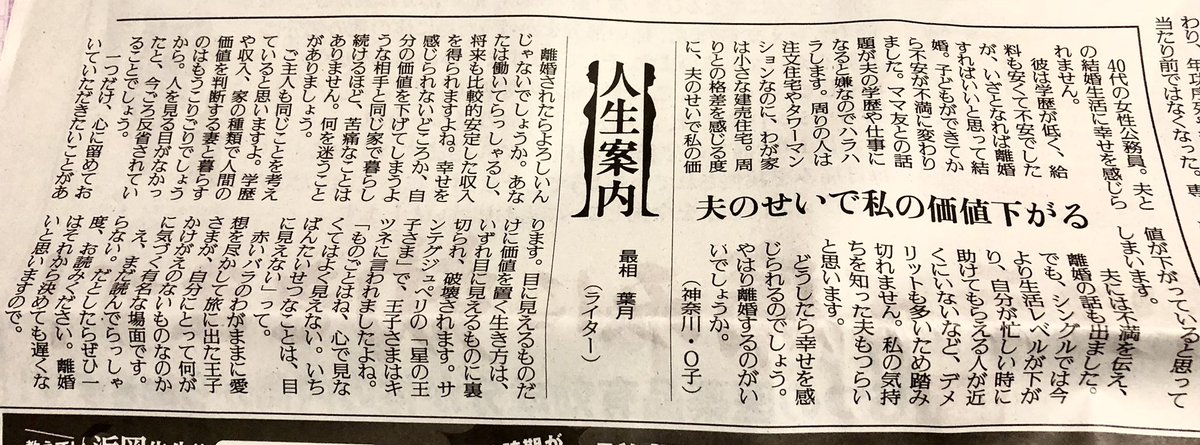 当たり前ではなくなった。専
40代の女性公務員。夫と
の結婚生活に幸せを感じら
れません。
彼は学歴が低く、給
料も安くて不安でした
が、いざとなれば離婚
すればいいと思って結
婚。子どもができてか
ら不安が不満に変わり
ました。ママ友との話
題が夫の学歴や仕事に
なると嫌なのでハラハ
ラします。周りの人は
注文住宅やタワーマン
ションなのに、わが家
は小さな建売住宅。周
りとの格差を感じる度
に、夫のせいで私の価
夫のせいで私の価値下がる
値が下がっていると思って
しまいます。
夫には不満を伝え、
離婚の話も出ました。
でも、シングルでは今
より生活レベルが下が
り、自分が忙しい時に
助けてもらえる人が近
くにいないなど、デメ
リットも多いため踏み
切れません。私の気持
ちを知った夫もつらい
と思います。
どうしたら幸せを感
じられるのでしょう。
やはり離婚するのがい
いでしょうか。
（神奈川・O子）
人生案内
最相 葉月
（ライター）
離婚されたらよろしいん
じゃないでしょうか。あな
たは働いてらっしゃるし、
将来も比較的安定した収入
を得られますよね。幸せを
感じられないどころか、自
分の価値を下げてしまうよ
うな相手と同じ家で暮らし
続けるほど、苦痛なことは
ありません。何を迷うこと
がありましょう。
ご主人も同じことを考え
ていると思いますよ。学歴
や収入、家の種類で人間の
価値を判断する妻と暮らす
のはもうこりごりでしょう
から。人を見る目がなかっ
たと、今ごろ反省されてい
ることでしょう。
一つだけ、心に留めてお
いていただきたいことがあ
ります。目に見えるものだ
けに価値を置く生き方は、
いずれ目に見えるものに裏
切られ、破壊されます。サ
ンテグジュペリの「星の王
子さま」で、王子さまはキ
ツネに言われましたよね。
「ものごとはね、心で見な
くてはよく見えない。いち
ばんたいせつなことは、目
に見えない」って。
赤いバラのわがままに愛
想を尽かして旅に出た王子
さまが、自分にとって何が
かけがえのないものなのか
に気づく有名な場面です。
え、まだ読んでらっしゃ
らない。だとしたらぜひ一
度、お読みください。離婚
はそれから決めても遅くな
いと思いますので。
時期が